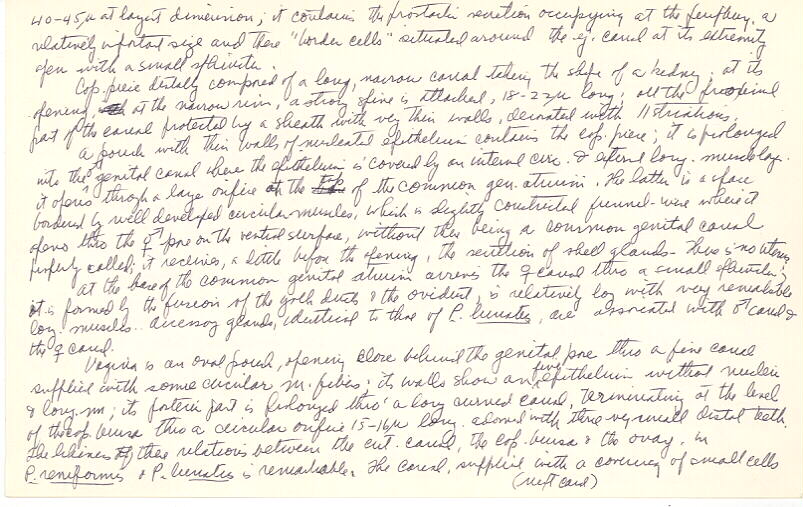 40-45µ at largest dimension; it contains the prostatic secretion occupying at the periphery, a
relatively important size and these "border cells" situated around the ej. canal at its extremity
open with a small sphincter.
Cop. piece distally composed of a long, narrow canal taking the shape of a kidney; at its
opening, at the narrow rim, a strong spine is attached, 18-22µ long; all the proximal
part of the canal protected by a sheath with very thin walls, decorated with 11 striations.
a ♂ pouch with thin walls of nucleated epithelium contains the cop. piece; it is prolonged
into the ♂ genital canal where the epithelium is covered by an internal circ. & external long. muscle layer.
it opens through a large orifice at the of the common gen. atrium. The latter is a space
bordered by well developed circular muscles, which is slightly constricted funnel-wise where it
opens thro the ♀ pore on the ventral surface, without there being a common genital canal
properly called; it receives, a little before the opening, the secretion of shell glands - There is no uterus
at the base of the common genital atrium arrives the ♀ canal thro a small sphincter;
it is formed by the fusion of the yolk ducts & the oviduct, is relatively long with very remarkable
long. muscles.. accessory glands, identical to that of P. lunatus, are associated with ♂ canal &
the ♀ canal.
Vagina is an oval pouch, opening close behind the genital pore thro a fine canal
supplied with some circular m. fibers; its walls show a fine epithelium without nuclei
& long. mm; its posterior part is prolonged thro' a long curved canal, terminating at the level
of the cop. bursa thro a circular orifice 15-16µ long. adorned with three very small distal teeth.
The likeness of these relations between the cut. canal, the cop. bursa & the ovary, in
P. reniformis & P. lunatus is remarkable. The canal, supplied with a covering of small cells
(next card)